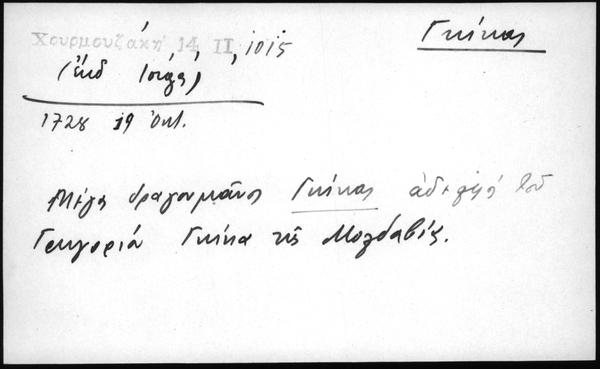 Γκίκας
Χουρμουζάκη 14 II, 1015
(ἐκδ Ἰόργα)
1728 19 Ὀκτ.
Μέγας δραγουμᾶνος Γκίκας ἀδελφὸς τοῦ
Γρηγορίου Γκίκα τῆς Μολδαβίας.